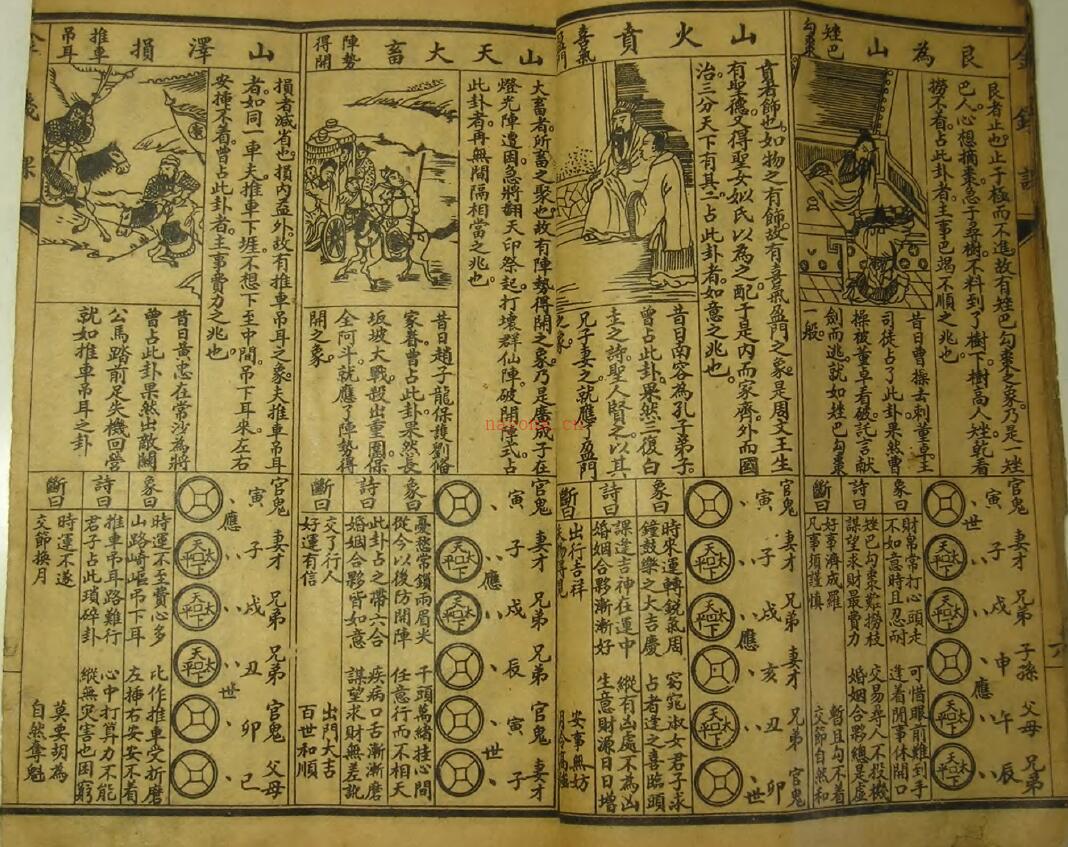 艮為山
矬巴
勾棗
艮者止也止于極而不進故有矬巴勾棗之象乃是一矬
巴人心想摘棗急于尋樹不料到了樹下樹高人矬乾看
撈不着占此卦者主事巴竭不順之兆也
昔日曹操去刺董卓王
司徒占了此卦果然曹
操被董卓看破託言献
劍而逃就如矬巴勾棗
一般
官鬼 妻才 兄弟 子孫 父母 兄弟
寅 子 戌 申 午 辰
世 應
象曰
財帛常打心頭走 可惜眼前難到手
不如意時且忍耐 逢着閒事休開口
詩曰
矬巴勾棗難撈枝 交易尋人不投機
謀望求財最費力 婚姻合夥總是虛
斷曰
好事濟成羅 暫且勾不着
凡事須謹慎 交節自然和
山火賁
喜氣
盈門
賁者飾也如物之有飾故有喜氣盈門之象是周文王生
有聖德又得聖女姒氏以為之配于是内而家齊外而國
治三分天下有其二占此卦者如意之兆也
昔日南容為孔子弟子
曾占此卦果然三復白
圭之詩聖人賢之以其
兄子妻之就應了盈門
之象
官鬼 妻才 兄弟 妻才 兄弟 官鬼
寅 子 戌 亥 丑 卯
應 世
象曰
時來運轉鋭氣周 窈窕淑女君子求
鐘鼓樂之大吉慶 占者逢之喜臨頭
詩曰
課逢吉神在運中 縱有凶處不為凶
婚姻合夥漸漸好 生意財源日日增
斷曰
出行吉祥 安事無妨
山天大畜
陣勢
得開
大畜者所畜之聚也故有陣勢得開之象乃是廣成子在
燈光陣遭困急將翻天印祭起打壞群仙陣破開陣式占
此卦者再無間隔相當之兆也
昔日趙子龍保護劉備
家眷曾占此卦果然長
坂坡大戰殺出重圍保
全阿斗就應了陣勢得
開之象
官鬼 妻才 兄弟 兄弟 官鬼 妻才
寅 子 戌 辰 寅 子
應 世
象曰
憂愁常鎖兩眉尖 千頭萬緒挂心間
從今以後防開陣 任意行而不相天
詩曰
此卦占之帶六合 疾病口舌漸漸磨
婚姻合夥皆如意 謀望求財無差訛
斷曰
交了行人 出門大吉
好運有信 百世和順
山澤損
推車
吊耳
損者減省也損内益外故有推車吊耳之象夫推車吊耳
者如同一車夫推車下堐不想下至中間吊下耳來左右
安揷不着嘗占此卦者主事費力之兆也
昔日黄忠在常沙為將
曾占此卦果然出敵關
公馬踏前足失機回營
就如推車吊耳之卦
官鬼 妻才 兄弟 兄弟 官鬼 父母
寅 子 戌 丑 卯 巳
應 世
象曰
時運不至費心多 比作推車受折磨
山路崎嶇吊下耳 左揷右安安不着
詩曰
推車吊耳路難行 心中打算力不能
君子占此瑣碎卦 縱無灾害也困窮
斷曰
時運不遂 莫要胡為
交節換月 自然奪魁
nayong.cn